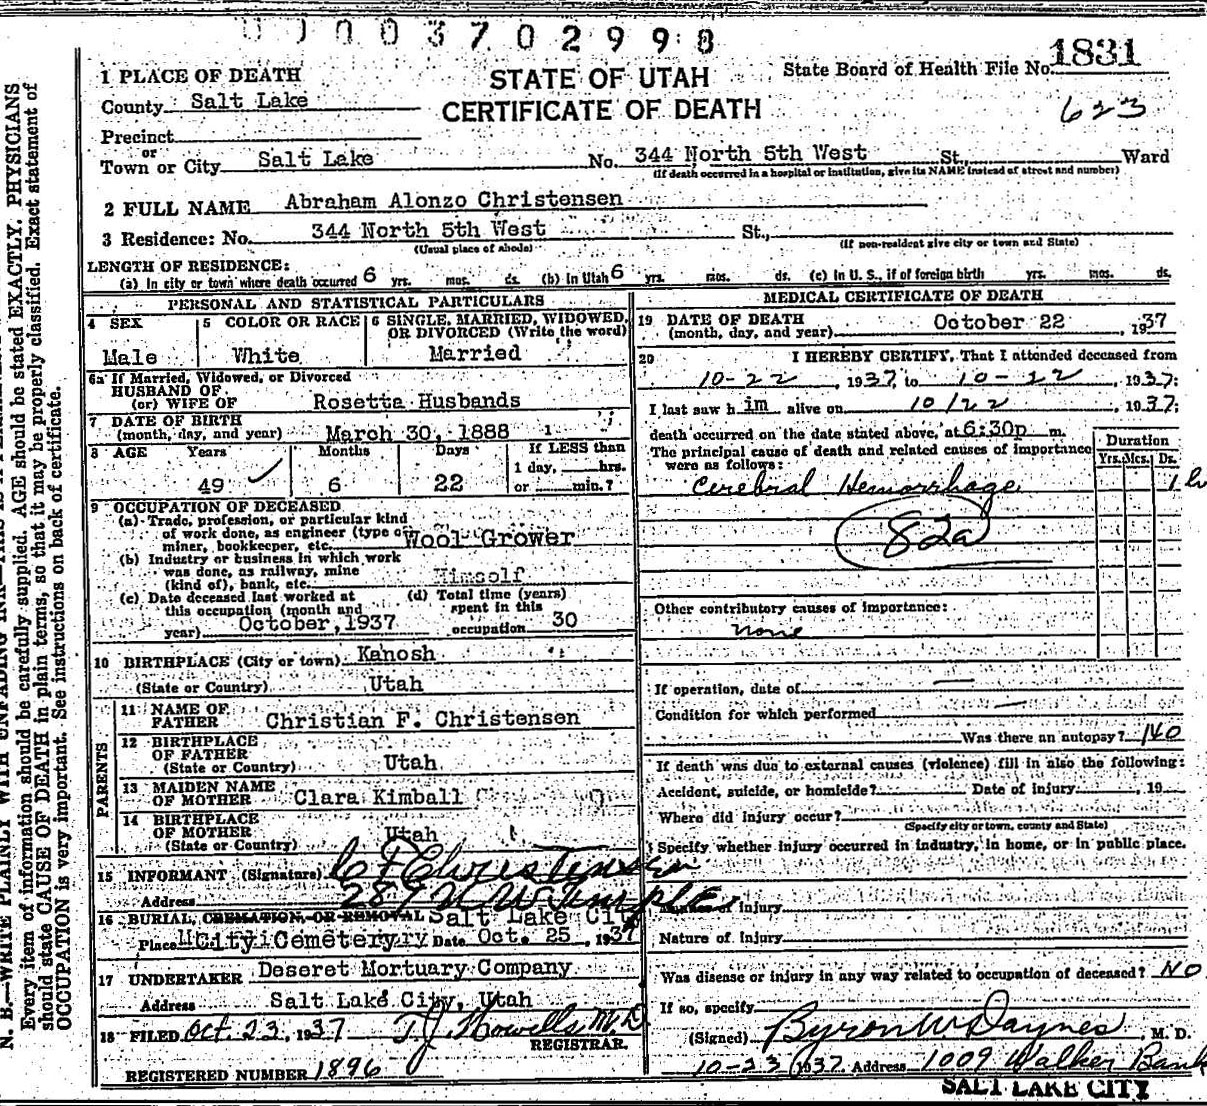 0003702998
1 PLACE OF DEATH
STATE OF UTAH
State Board of Health File No. 1831
County Salt Lake
CERTIFICATE OF DEATH
623
Precinct
or
Town or City Salt Lake No. 344 North 5th West St., Ward
(If death occurred in a hospital or institution, give its NAME instead of street and number)
2 FULL NAME Abraham Alonzo Christensen
3 Residence: No. 344 North 5th West St.,
(Usual place of abode) (If non-resident give city or town and State)
LENGTH OF RESIDENCE:
(a) In city or town where death occurred 6 yrs. mos. ds. (b) In Utah 6 yrs. mos. ds. (c) In U. S., if of foreign birth yrs. mos. ds.
PERSONAL AND STATISTICAL PARTICULARS
4 SEX
Male
5 COLOR OR RACE
White
6 SINGLE, MARRIED, WIDOWED, OR DIVORCED (Write the word)
Married
6a If Married, Widowed, or Divorced
HUSBAND OF
(or) WIFE OF Rosetta Husbands
7 DATE OF BIRTH
(month, day, and year) March 30, 1888
8 AGE Years Months Days If LESS than
1 day, hrs.
49 6 22 or min.?
9 OCCUPATION OF DECEASED
(a) Trade, profession, or particular kind
of work done, as engineer (type of
miner, bookkeeper, etc. Wool Grower
(b) Industry or business in which work
was done, as railway, mine
(kind of), bank, etc. Himself
(c) Date deceased last worked at
this occupation (month and
year) October, 1937
(d) Total time (years)
spent in this
occupation 30
10 BIRTHPLACE (City or town) Kanosh
(State or Country) Utah
PARENTS
11 NAME OF
FATHER Christian F. Christensen
12 BIRTHPLACE
OF FATHER
(State or Country) Utah
13 MAIDEN NAME
OF MOTHER Clara Kimball
14 BIRTHPLACE
OF MOTHER
(State or Country) Utah
15 INFORMANT (Signature) C F Christensen
Address 289 N W Temple
16 BURIAL, CREMATION, OR REMOVAL Salt Lake City
Place City Cemetery Date Oct. 25, 1937
17 UNDERTAKER Deseret Mortuary Company
Address Salt Lake City, Utah
18 FILED Oct. 23, 1937 T. J. Howells, M. D.
REGISTRAR.
REGISTERED NUMBER 1896
MEDICAL CERTIFICATE OF DEATH
19 DATE OF DEATH
(month, day, and year) October 22, 1937
20 I HEREBY CERTIFY, That I attended deceased from
10-22, 1937, to 10-22, 1937;
I last saw him alive on 10/22, 1937;
death occurred on the date stated above, at 6:30p m.
The principal cause of death and related causes of importance
were as follows:
Duration
Yrs. Mos. Ds.
Cerebral Hemorrhage 1 h
82a
Other contributory causes of importance:
none
If operation, date of —
Condition for which performed —
Was there an autopsy? NO
If death was due to external causes (violence) fill in also the following:
Accident, suicide, or homicide? Date of injury , 19
Where did injury occur?
(Specify city or town, county and State)
Specify whether injury occurred in industry, in home, or in public place.
Manner of injury
Nature of injury
Was disease or injury in any way related to occupation of deceased? NO
If so, specify
(Signed) Byron W Daynes, M. D.
10-23 1937 Address 1009 Walker Bank
SALT LAKE CITY
Every item of information should be carefully supplied. AGE should be stated EXACTLY. PHYSICIANS
should state CAUSE OF DEATH in plain terms, so that it may be properly classified. Exact statement of
OCCUPATION is very important. See instructions on back of certificate.
N. B.—WRITE PLAINLY WITH UNFADING INK—THIS IS A